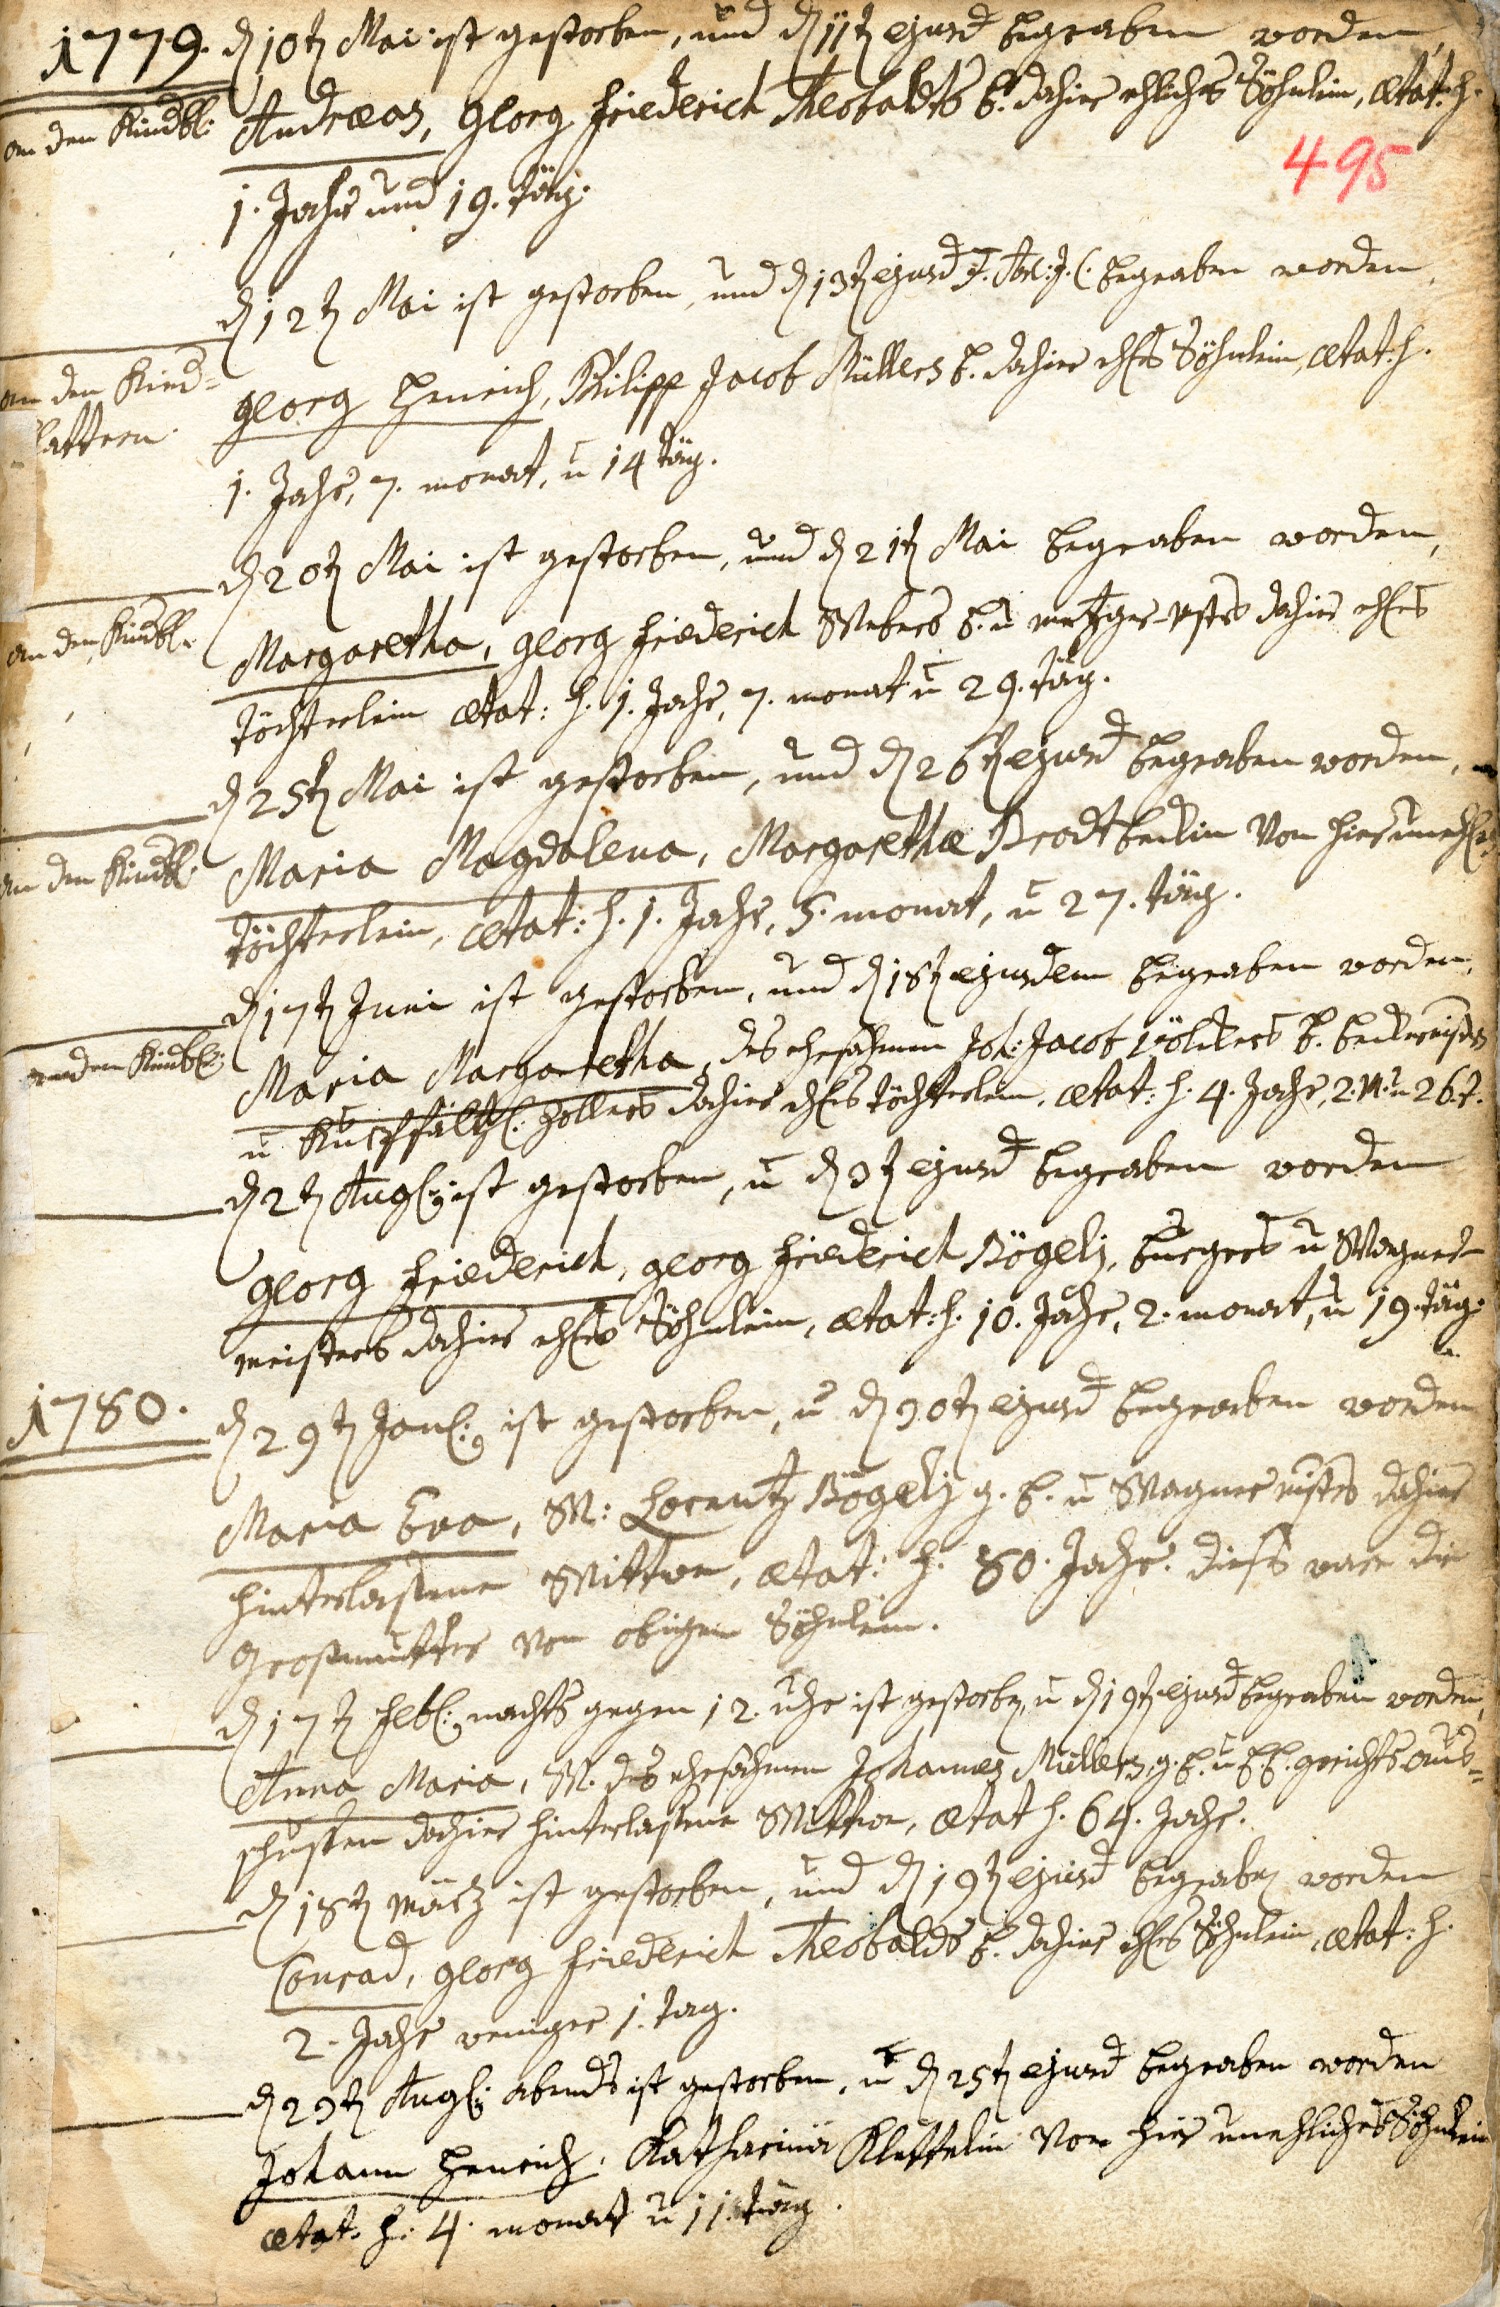 1779. d 10t Mai ist gestorben, und d 11t ejusd begraben worden,
an den Kindbl: Andreas, Georg Friederich Theobaldts b. dahier ehliches Söhnlein, ætat: h.
495
1. Jahr und 19. täg.
d 12t Mai ist gestorben, und d 13t ejusd begraben worden,
an den Kind= Georg Henrich, Philipp Jacob Müllers b. dahier ehl Söhnlein, ætat: h.
blattern. 1. Jahr, 7. monat, u 14 täg.
d 20t Mai ist gestorben, und d 21t Mai begraben worden,
an den Kindbl. Margaretha, Georg Friederich Webers b. u metzger dahier ehls
Töchterlein ætat: h. 1. Jahr, 7. monat u 29. täg.
d 25t Mai ist gestorben, und d 26t ejusd begraben worden,
an den Kindbl. Maria Magdalena, Margarethæ Brodtbeckin von hier unehl
Töchterlein, ætat: h. 1. Jahr, 5. monat, u 27. täg.
d 17t Juni ist gestorben, und d 18t ejusdem begraben worden,
an den Kindbl: Maria Margaretha, des ehrsahmen Joh: Jacob b.
u Kurpfältz. Zollers dahier ehls Töchterlein, ætat: h. 4. Jahr, 2. M. u 26. T.
d 2t Aug: ist gestorben, u d 3t ejusd begraben worden
Georg Friederich, Georg Friederich Bögeli, burgers u Wagner
meisters dahier ehls Söhnlein, ætat: h. 10. Jahr, 2. monat, u 19. täg.
1780. d 29t Jan: ist gestorben, u d 30t ejusd begraben worden
Maria Eva, W: Lorentz Bögeli g. b. u Wagner mstrs dahier
hinterlassene Wittwe, ætat: h. 80. Jahr. dieß war die
Großmutter von obigem Söhnlein.
d 17t Feb: nachts gegen 12. uhr ist gestorben, u d 19t ejusd begraben worden,
Anna Maria, W. des ehrsahmen Johannes Müllers, g. b. u gerichts aus=
schußen dahier hinterlassene Wittwe, ætat h. 64. Jahr.
d 18t Märtz ist gestorben, und d 19t ejusd begraben worden
Conrad, Georg Friederich Theobalds b. dahier ehls Söhnlein, ætat: h.
2. Jahr weniger 1. tag.
d 23t Aug: abends ist gestorben, u d 25t ejusd begraben worden
Johann Henrich, Katharinä Klettelin von hier unehliches Söhnlein
ætat. h: 4. monat u 11. täg.